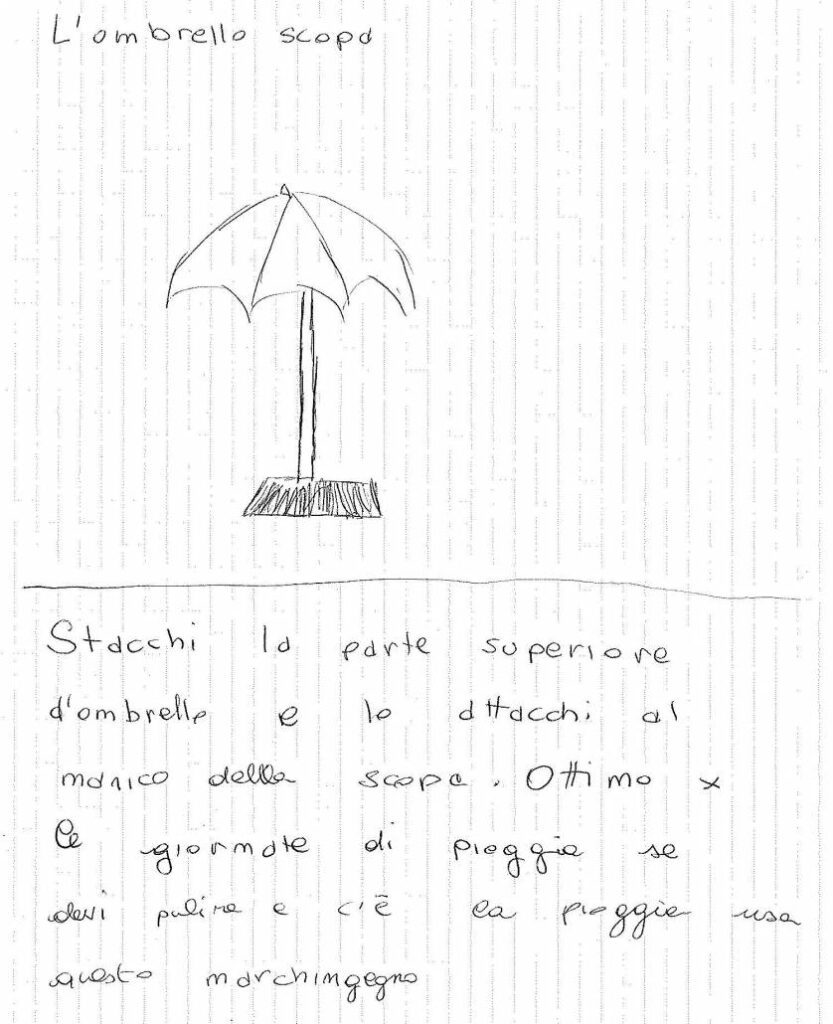 L'ombrello scopa
Stacchi la parte superiore
d'ombrello e lo attacchi al
manico della scopa. Ottimo x
le giornate di pioggia se
devi pulire e c'è la pioggia usa
questo marchingegno